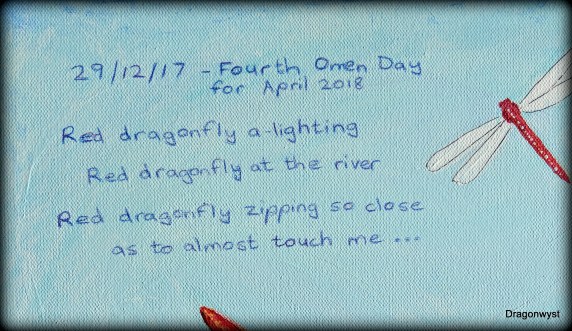 29/12/17 - Fourth Omen Day
for April 2018
Red dragonfly a-lighting
Red dragonfly at the river
Red dragonfly zipping so close
as to almost touch me ...
Dragonwyst